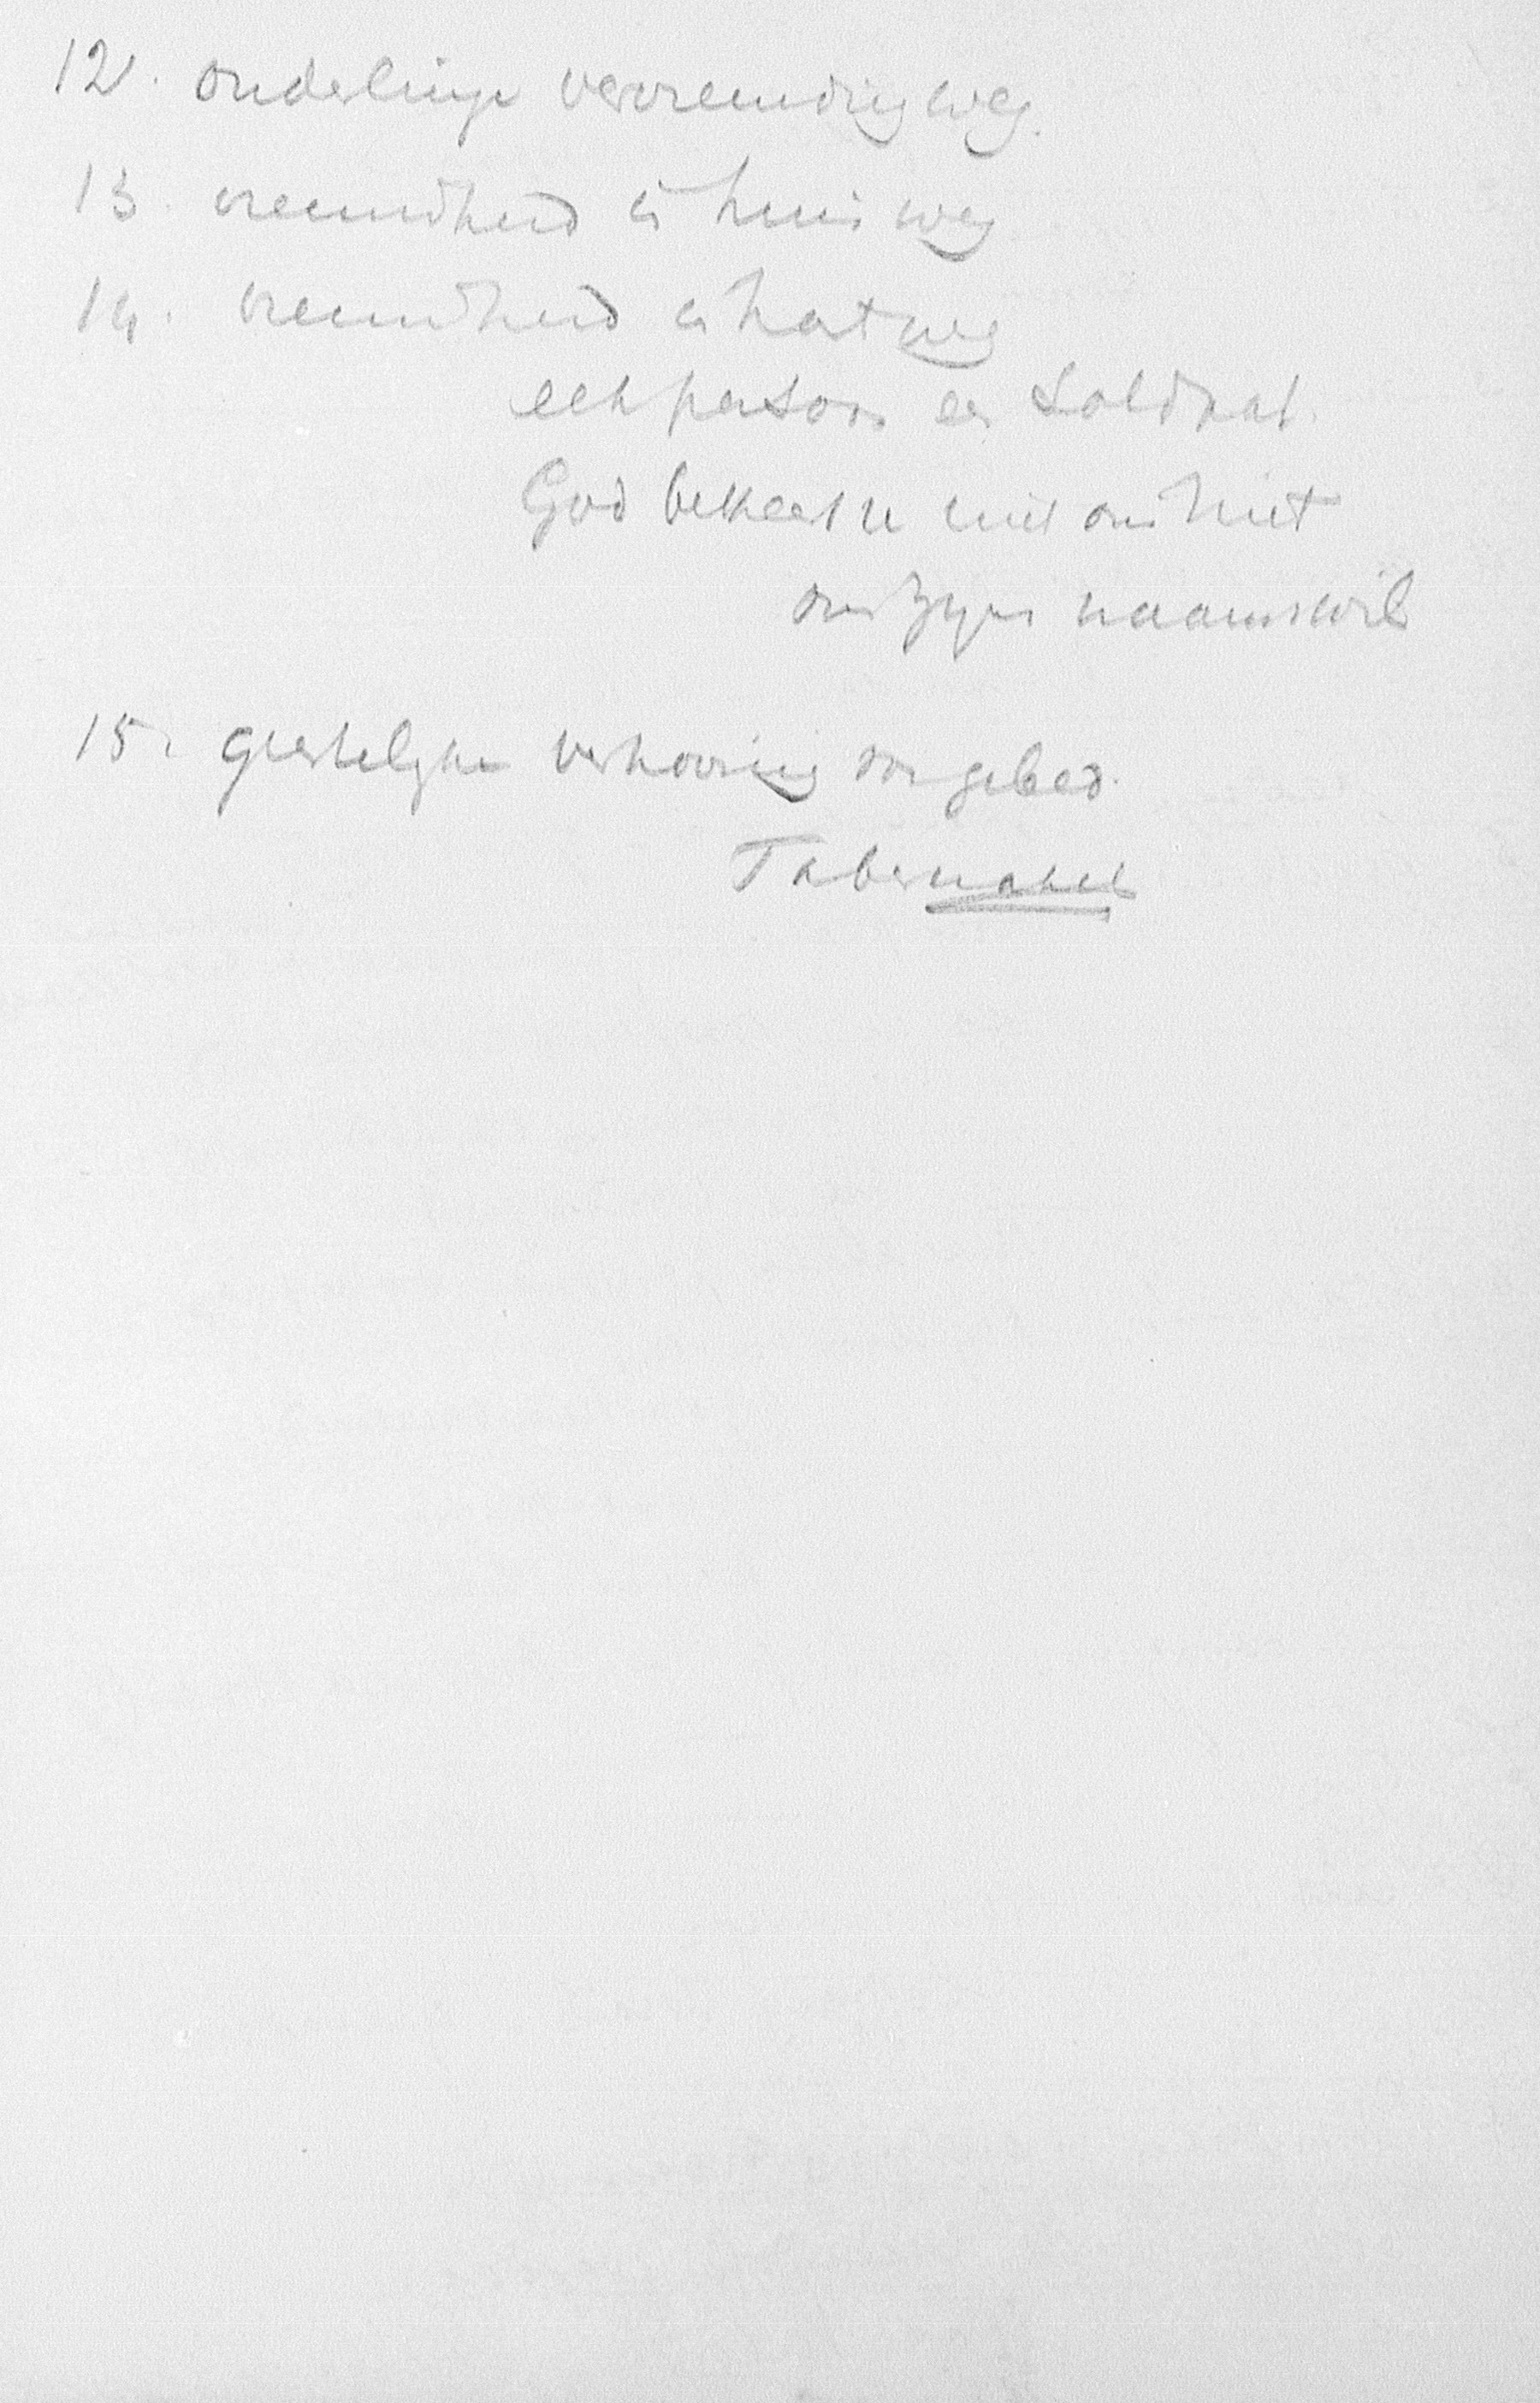 12. onderlinge vervreemding weg.
13. vreemdheid in huis weg
14. vreemdheid in hart weg
een persoon een soldaat.
God bekeert u niet om niet
om zijns naamswil
15. geestelijke verhooring van gebed.
Tabernakel